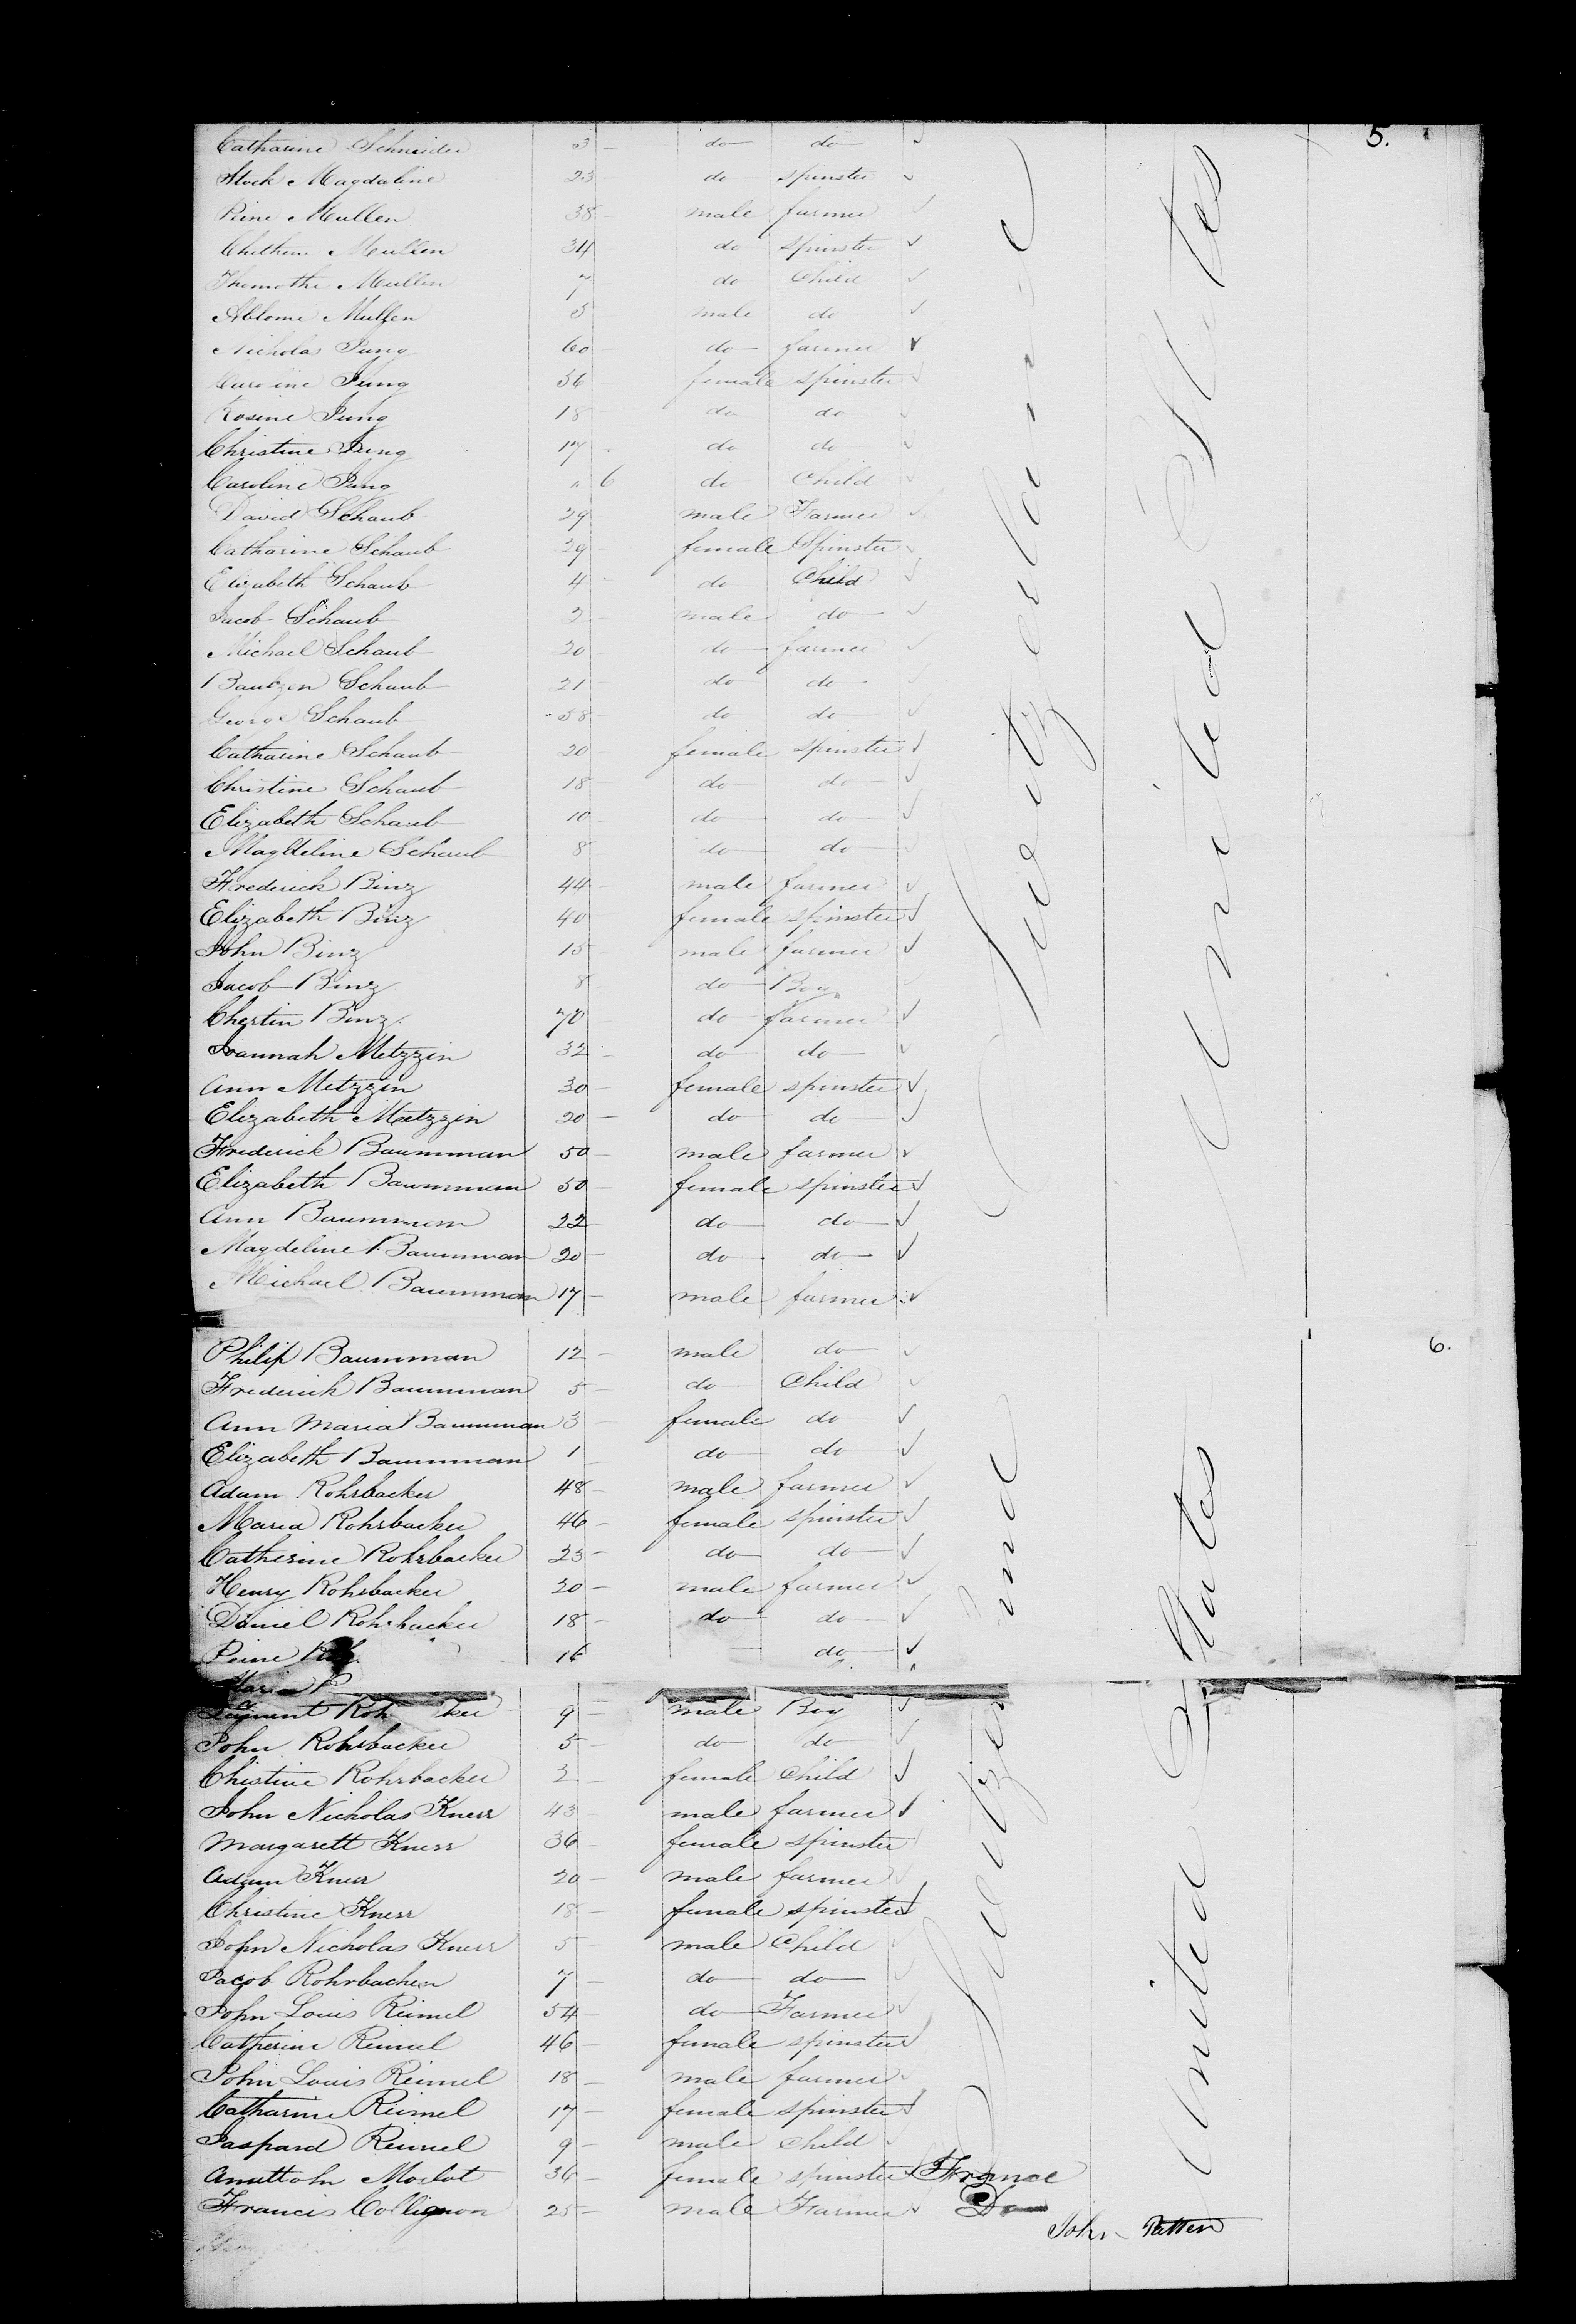 5.
Catharine Schneider 3 — do do ✓
Stock Magdaline 23 — do spinster ✓
Pine Mullen 38 — male farmer ✓
Mullen 34 do spinster ✓
Themothe Mullen 7 do Child ✓
Ablome Mullen 5 male do ✓
Nicholas Jung 60 — do farmer ✓
Caroline Jung 36 female spinster ✓
Rosine Jung 18 do do ✓
Christine Jung 17 do do ✓
Caroline Jung " 6 do Child ✓
David Schaub 29 male Farmer ✓
Catharine Schaub 29 — female Spinster ✓
Elizabeth Schaub 4 — do Child ✓
Jacob Schaub 2 male do ✓
Michael Schaub 20 do farmer ✓
Schaub 21 — do do ✓
George Schaub 58 — do do ✓
Catharine Schaub 20 — female spinster ✓
Christine Schaub 18 — do do ✓
Elizabeth Schaub 10 — do do ✓
Magdeline Schaub 8 do do ✓
Frederick Binz 44 — male farmer ✓
Elizabeth Binz 40 — female spinster ✓
John Binz 15 — male farmer ✓
Jacob Binz 8 do Boy ✓
Chertin Binz 70 do farmer ✓
Joannah Metzzin 32 — do do ✓
Ann Metzzin 30 — female spinster ✓
Elizabeth Metzzin 20 — do do ✓
Frederick Baumman 50 — male farmer ✓
Elizabeth Baumman 50 — female spinster ✓
Ann Baumman 22 do do ✓
Magdeline Baumman 20 — do do ✓
Michael Baumman 17 — male farmer ✓
Switzerland
United States
6.
Philip Baumman 12 — male do ✓
Frederick Baumman 5 — do Child ✓
Ann Maria Baumman 3 — female do ✓
Elizabeth Baumman 1 do do ✓
Adam Rohrbacker 48 — male farmer ✓
Maria Rohrbacker 46 — female spinster ✓
Catherine Rohrbacker 23 — do do ✓
Henry Rohrbacker 20 — male farmer ✓
Daniel Rohrbacker 18 — do do ✓
16 do ✓
Maria R
Roh ker 9 — male Boy ✓
John Rohrbacker 5 — do do ✓
Chistine Rohrbacker 2 — female Child ✓
John Nicholas Knerr 43 — male farmer ✓
Margarett Knerr 36 — female spinster
Adam Knerr 20 — male farmer ✓
Christine Knerr 18 — female spinster ✓
John Nicholas Knerr 5 — male Child ✓
Jacob Rohrbacker 7 — do do ✓
John Louis Reimel 54 — do Farmer ✓
Catherine Reimel 46 — female spinster ✓
John Louis Reimel 18 — male farmer ✓
Catharine Reimel 17 — female spinster ✓
Jaspard Reimel 9 — male child ✓
Morlot 36 — female spinster ✓ France
Francis Collignon 25 — male Farmer ✓ Do
Switzerland
United States
John Patten